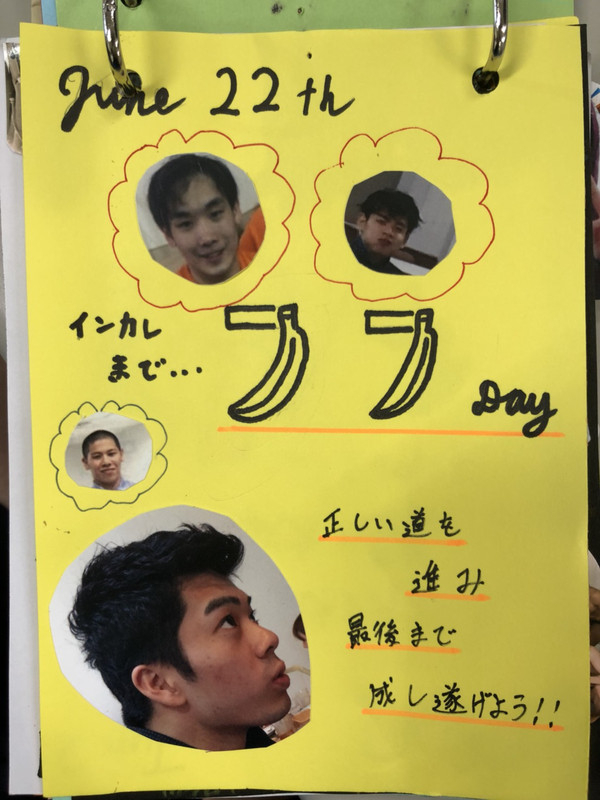 June 22th
インカレ
まで... 77 Day
正しい道を
進み
最後まで
成し遂げよう!!